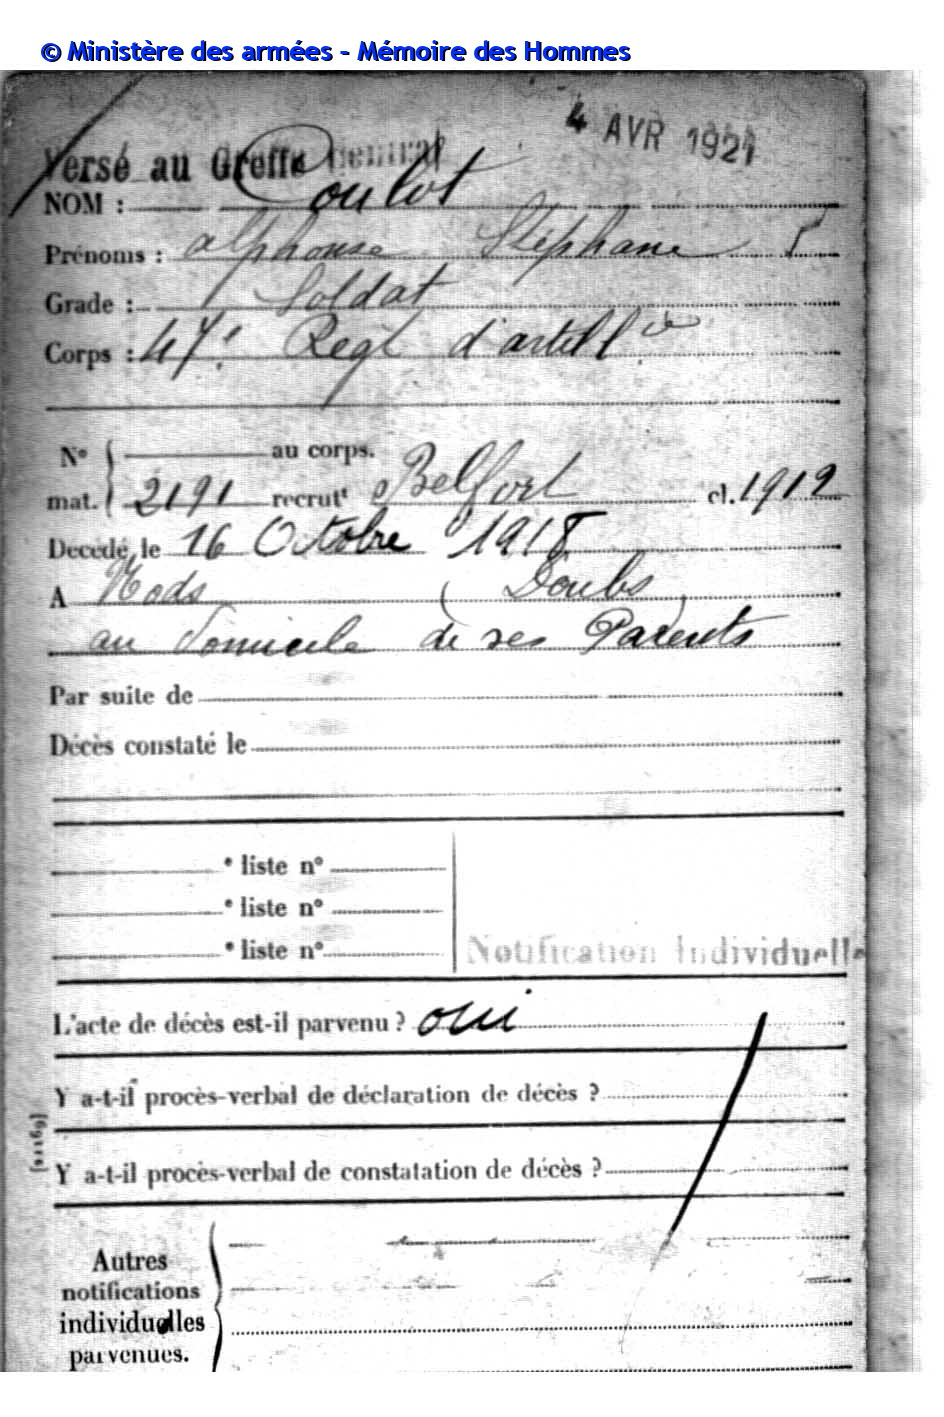 © Ministère des armées - Mémoire des Hommes
4 AVR 1921
Versé au Greffe Central
NOM : Coulot
Prénoms : Alphonse Stéphane
Grade : Soldat
Corps : 47e Regt d'artillie
N° au corps.
mat. 2191 recrutt Belfort cl. 1912
Décédé, le 16 Octobre 1918
A Nods (Doubs)
au domicile de ses Parents
Par suite de
Décès constaté le
e liste n°
e liste n°
e liste n°
Notification Individuelle
L'acte de décès est-il parvenu ? oui
Y a-t-il procès-verbal de déclaration de décès ?
Y a-t-il procès-verbal de constatation de décès ?
Autres
notifications
individuelles
parvenues.